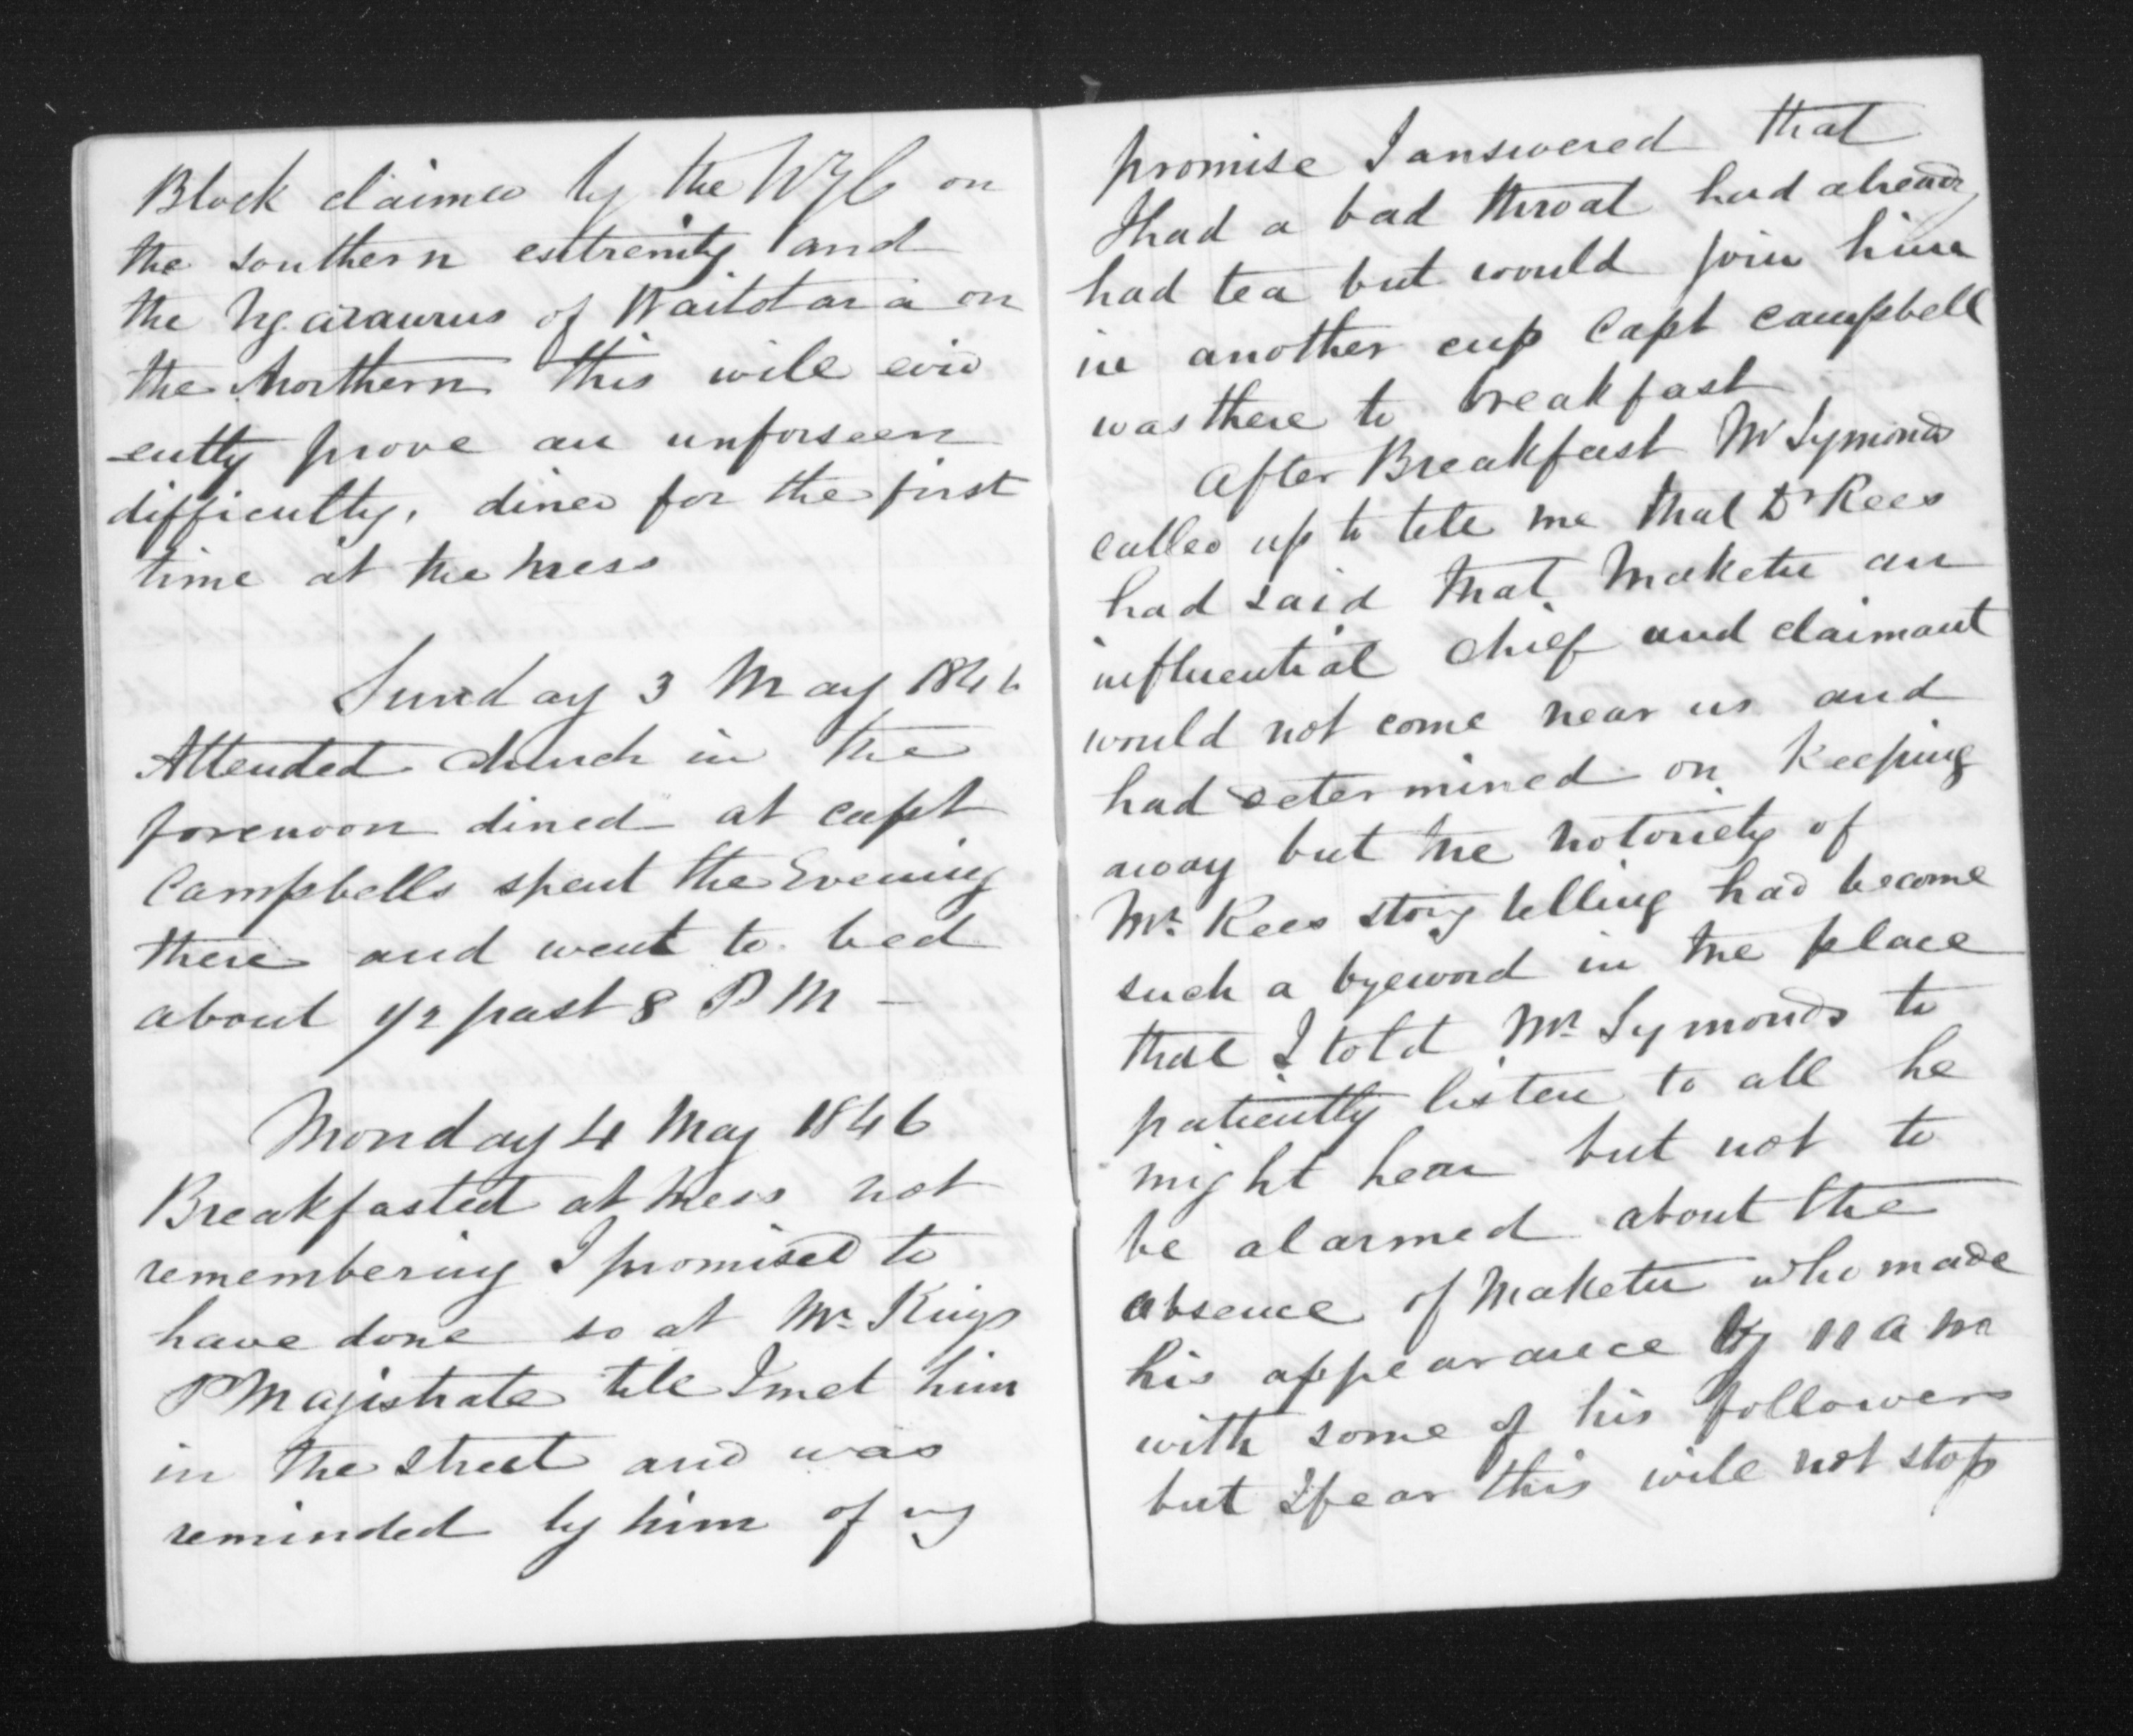 Block claimed by the NZC on
the southern extremity and
the Ngaraurus of Waitotara on
the Northern this will evid
ently prove an unforseen
difficulty, dined for the first
time at the mess
Sunday 3 May 1846
Attended church in the
forenoon dined at capt
Campbells spent the Evening
there and went to bed
about 1/2 past 8 PM –
Monday 4 May 1846
Breakfasted at mess not
remembering I promised to
have done so at Mr Kings
P Magistrate till I met him
in the street and was
reminded by him of my
promise I answered that
I had a bad throat had already
had tea but would join him
in another cup Capt Campbell
was there to breakfast
After Breakfast Mr Symonds
called up to tell me that Dr Rees
had said that Maketu an
influential chief and claimant
would not come near us and
had determined on keeping
away but the notoriety of
Mr Rees story telling had become
such a byeword in the place
that I told Mr Symonds to
patiently listen to all he
might hear but not to
be alarmed about the
absence of Maketu who made
his appearance by 11 a m
with some of his followers
but I fear this will not stop